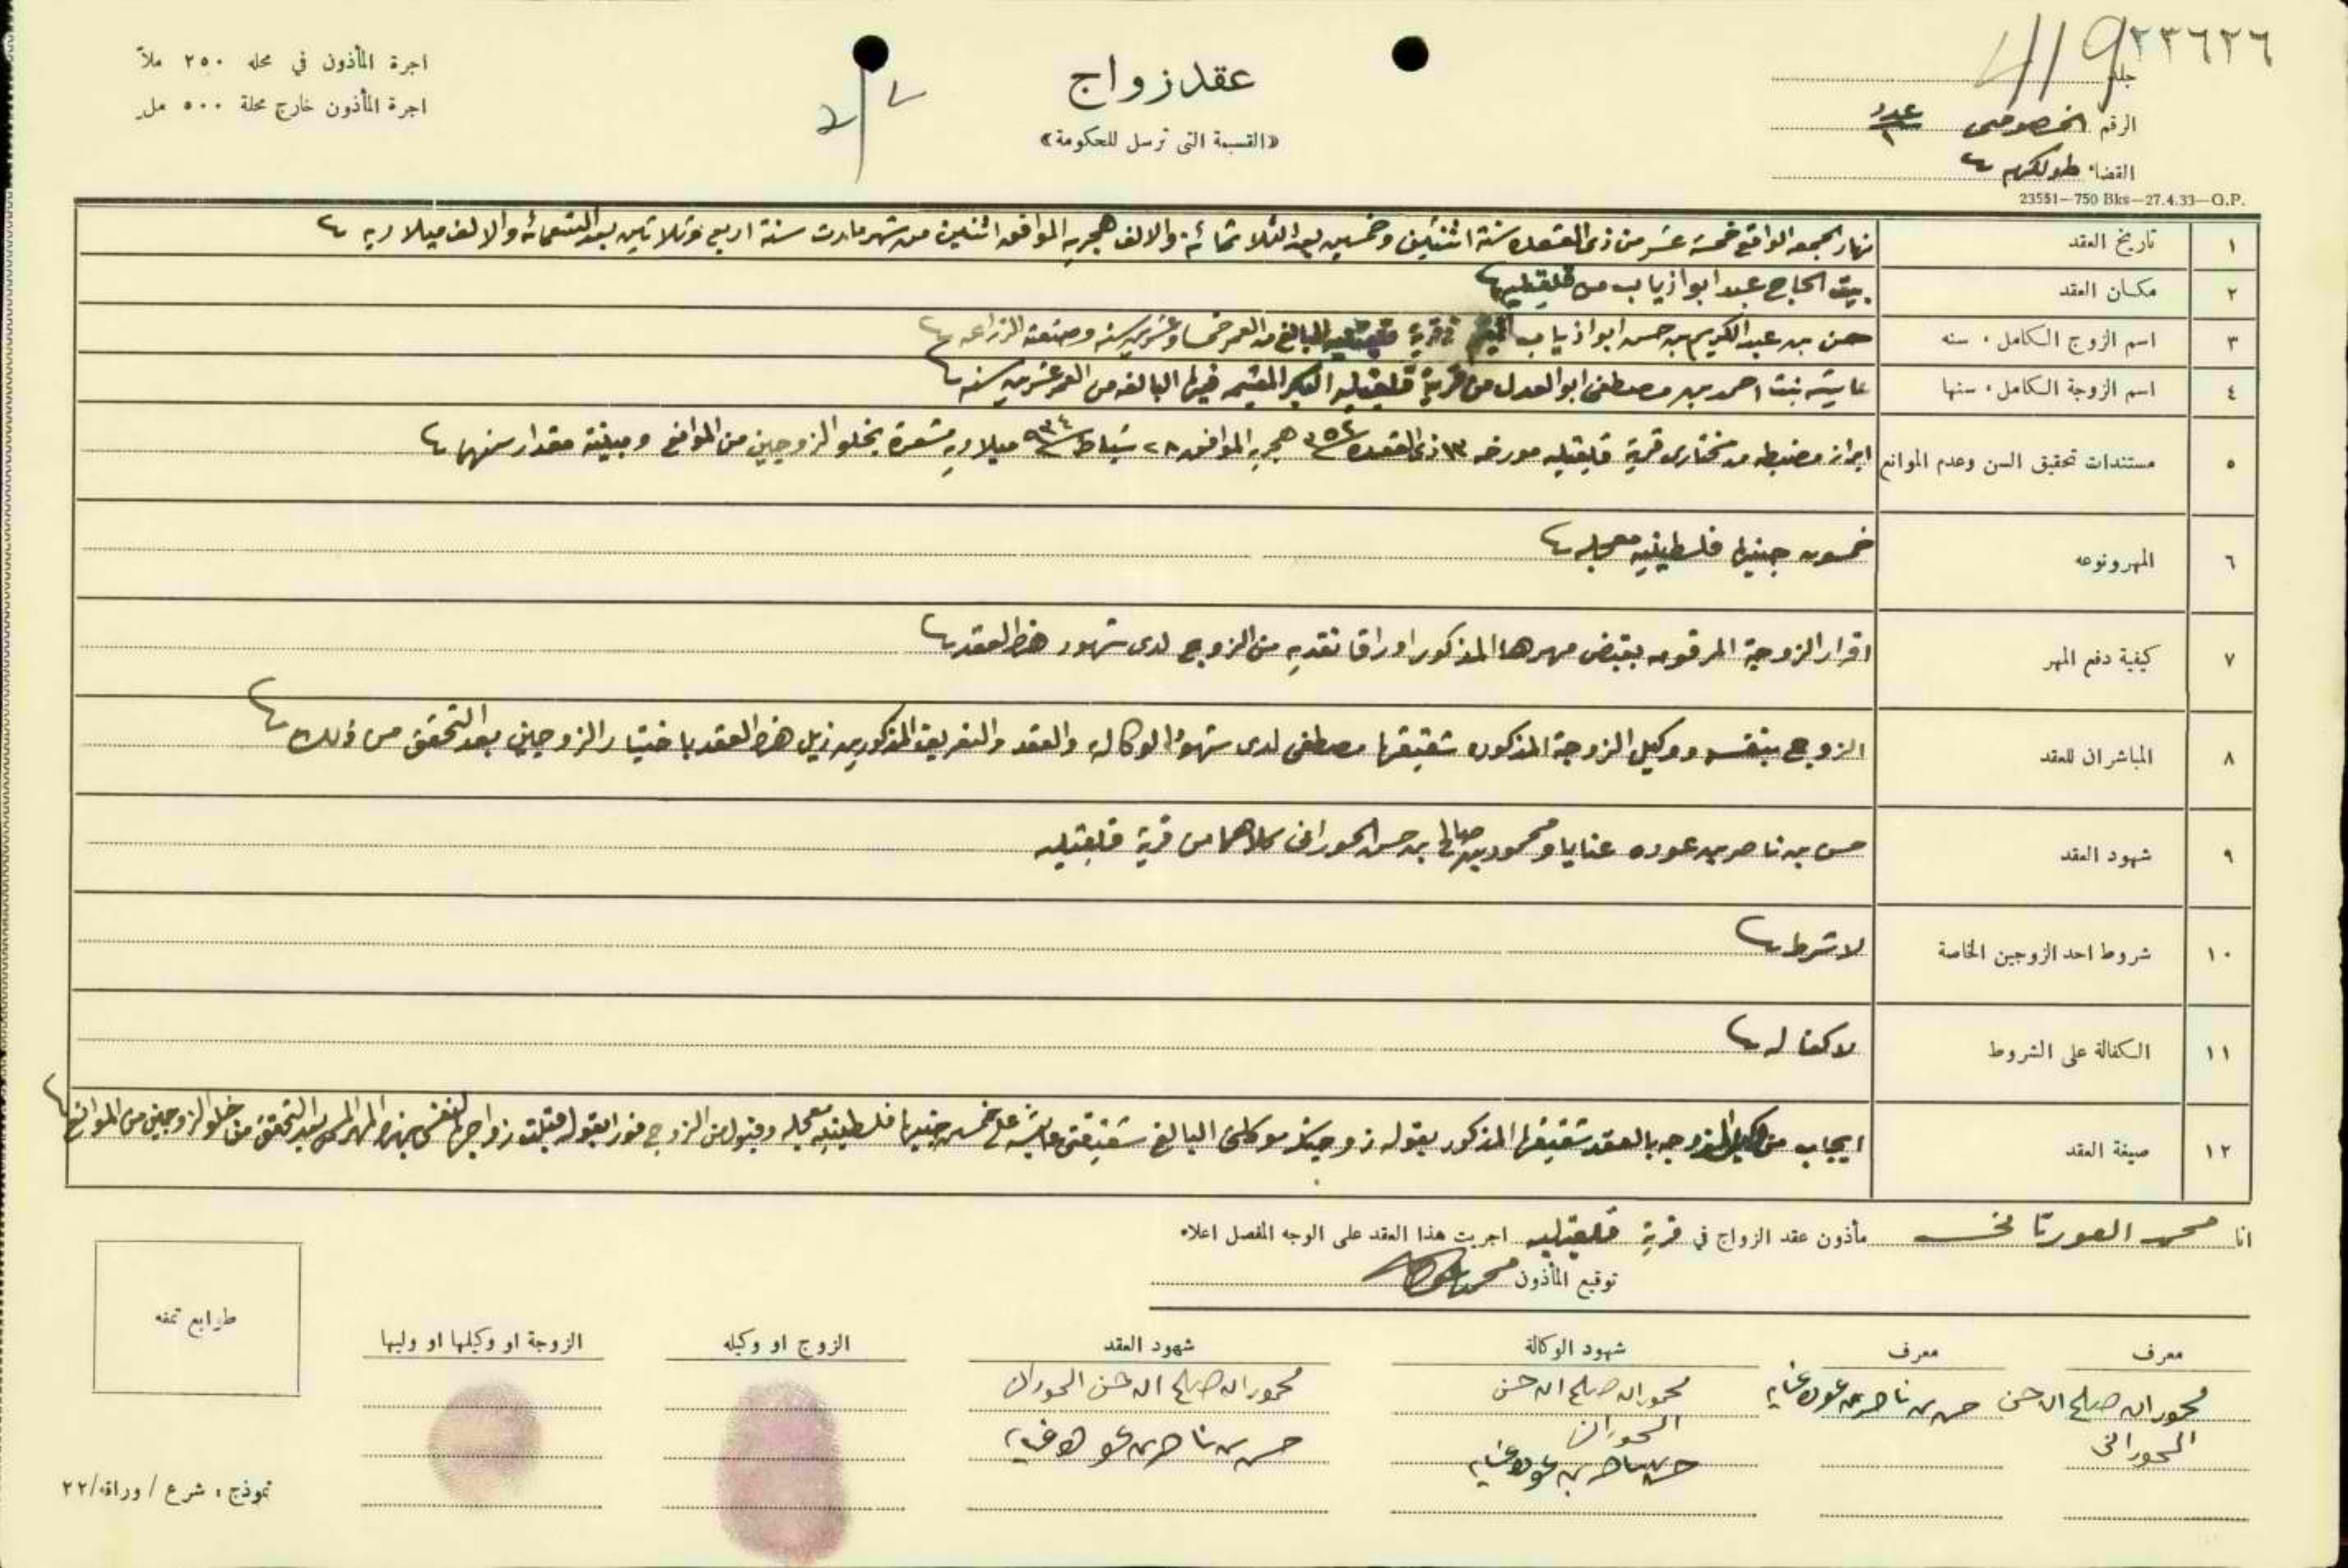 ٢٣٦٢٦
419
جلد
الرقم الخصوصي عدد ٢
القضاء طولكرم
23551—750 Bks—27.4.33—G.P.
عقد زواج
«القسيمة التي ترسل للحكومة»
اجرة المأذون في محله ٢٥٠ ملاً
اجرة المأذون خارج محلة ٥٠٠ مل
١ تاريخ العقد نهار الجمعه الواقع خمسة عشر من ذي القعده سنة اثنتين وخمسين بعد الثلاثمائه والالف هجريه الموافق اثنين من شهر مارت سنة اربع وثلاثين بعد التسعمائه والالف ميلاديه
٢ مكان العقد بيت الحاج عبد ابو اذياب من قلقيليه
٣ اسم الزوج الكامل، سنه حسن بن عبد الكريم بن حسن ابو اذياب المقيم في قرية قلقيليه البالغ من العمر خمسا وعشرين سنه وصنعته الزراعه
٤ اسم الزوجة الكامل، سنها عايشه بنت احمد بن مصطفى ابو العدل من قرية قلقيليه البكر المقيمه فيها البالغه من العمر عشرين سنه
٥ مستندات تحقيق السن وعدم الموانع ابراز مضبطه من مختاري قرية قلقيليه مورخه ١٣ ذي القعده ٣٥٢ هجريه الموافق ٢٨ شباط ٩٣٤ ميلاديه مشعرة بخلو الزوجين من الموانع ومبينة مقدار سنهما
٦ المهر ونوعه خمسون جنيها فلسطينيه معجله
٧ كيفية دفع المهر اقرار الزوجة المرقومه بقبض مهرها المذكور اوراقا نقديه من الزوج لدى شهود هذا العقد
٨ المباشران للعقد الزوج بنفسه ووكيل الزوجة المذكوره شقيقها مصطفى لدى شهود الوكاله والعقد والتعريف المذكورين ذيل هذا العقد باختيار الزوجين بعد التحقق من ذلك
٩ شهود العقد حسن بن ناصر بن عوده عنايا ومحمود بن صالح بن حسن الحوراني كلاهما من قرية قلقيليه
١٠ شروط احد الزوجين الخاصة لا شرط
١١ الكفالة على الشروط لا كفاله
١٢ صيغة العقد ايجاب من وكيل الزوجه بالعقد شقيقها المذكور بقوله زوجتك موكلتي البالغ شقيقتي عايشه على خمسين جنيها فلسطينيه معجله وقبول من الزوج فورا بقوله قبلت زواجها لنفسي بهذا المهر المسمى بعد التحقق من خلو الزوجين من الموانع
انا محمد العورتاني مأذون عقد الزواج في قرية قلقيليه اجريت هذا العقد على الوجه المفصل اعلاه
توقيع المأذون
معرف معرف شهود الوكالة شهود العقد الزوج او وكيله الزوجة او وكيلها او وليها
محمود ال صلح ال حسن حسن بن ناصر بن عوده عنايه محمود ال صلح ال حسن محمود ال صلح ال حسن الحوراني
الحوراني الحوراني حسن بن ناصر بن عوده عنايه
حسن بن ناصر بن عوده عنايه
طوابع تمغه
نموذج، شرع / وراقه/٢٢